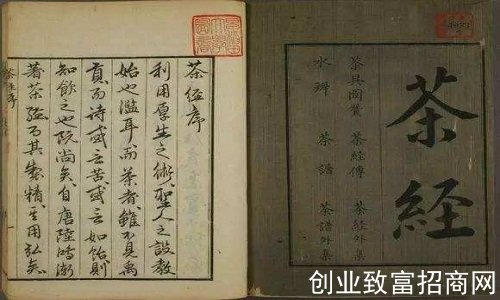 茶經
茶具圖贊 茶經傳 茶經外集
水辨 茶譜 茶譜外集
茶經序
利用厚生之術聖人之設教
始也濫耳而茶者雖不見禹
貢而詩或言苦或言如飴則
知飲之也既尚矣自唐陸鴻漸
著茶經而其製精其用弘矣
创业致富招商网